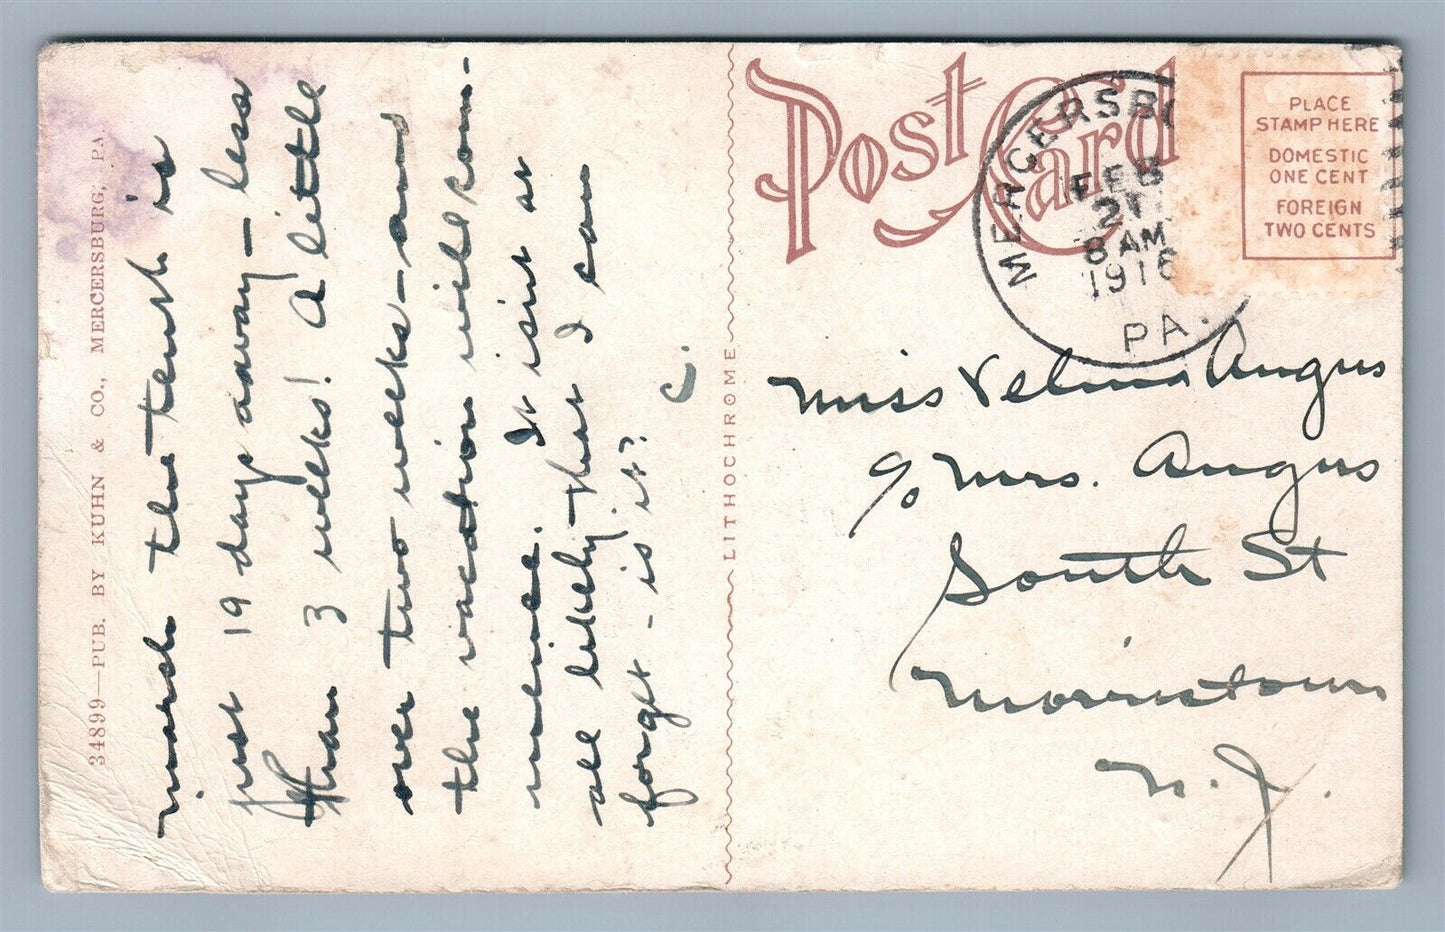 34899—PUB. BY KUHN & CO., MERCERSBURG, PA.
march the tenth is
just 19 days away — less
than 3 weeks! A little
over two weeks — and
the vacation will com-
mence. It isn't at
all likely that I can
forget — is it?
C.
LITHOCHROME
Post Card
MERCERSBU
FEB
21
8 AM
1916
PA.
PLACE
STAMP HERE
DOMESTIC
ONE CENT
FOREIGN
TWO CENTS
Miss Velma Angus
c/o Mrs. Angus
South St
Morristown
N. J.